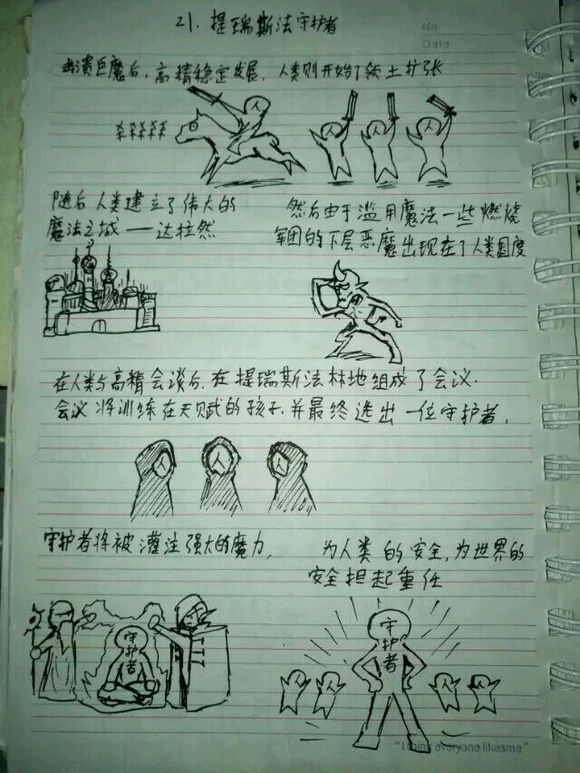 21. 提瑞斯法守护者
No
Data
击溃巨魔后, 高精稳定发展, 人类则开始了领土扩张
人 人 人
随后人类建立了伟大的
魔法之城——达拉然
然后由于滥用魔法一些燃烧
军团的下层恶魔出现在了人类国度
在人类与高精会谈后, 在提瑞斯法林地组成了会议.
会议将训练在天赋的孩子, 并最终选出一位守护者,
人 人 人
守护者将被灌注强大的魔力,
为人类的安全, 为世界的
安全担起重任
守护者
守护者
人 人 人 人
"I think everyone likesme"